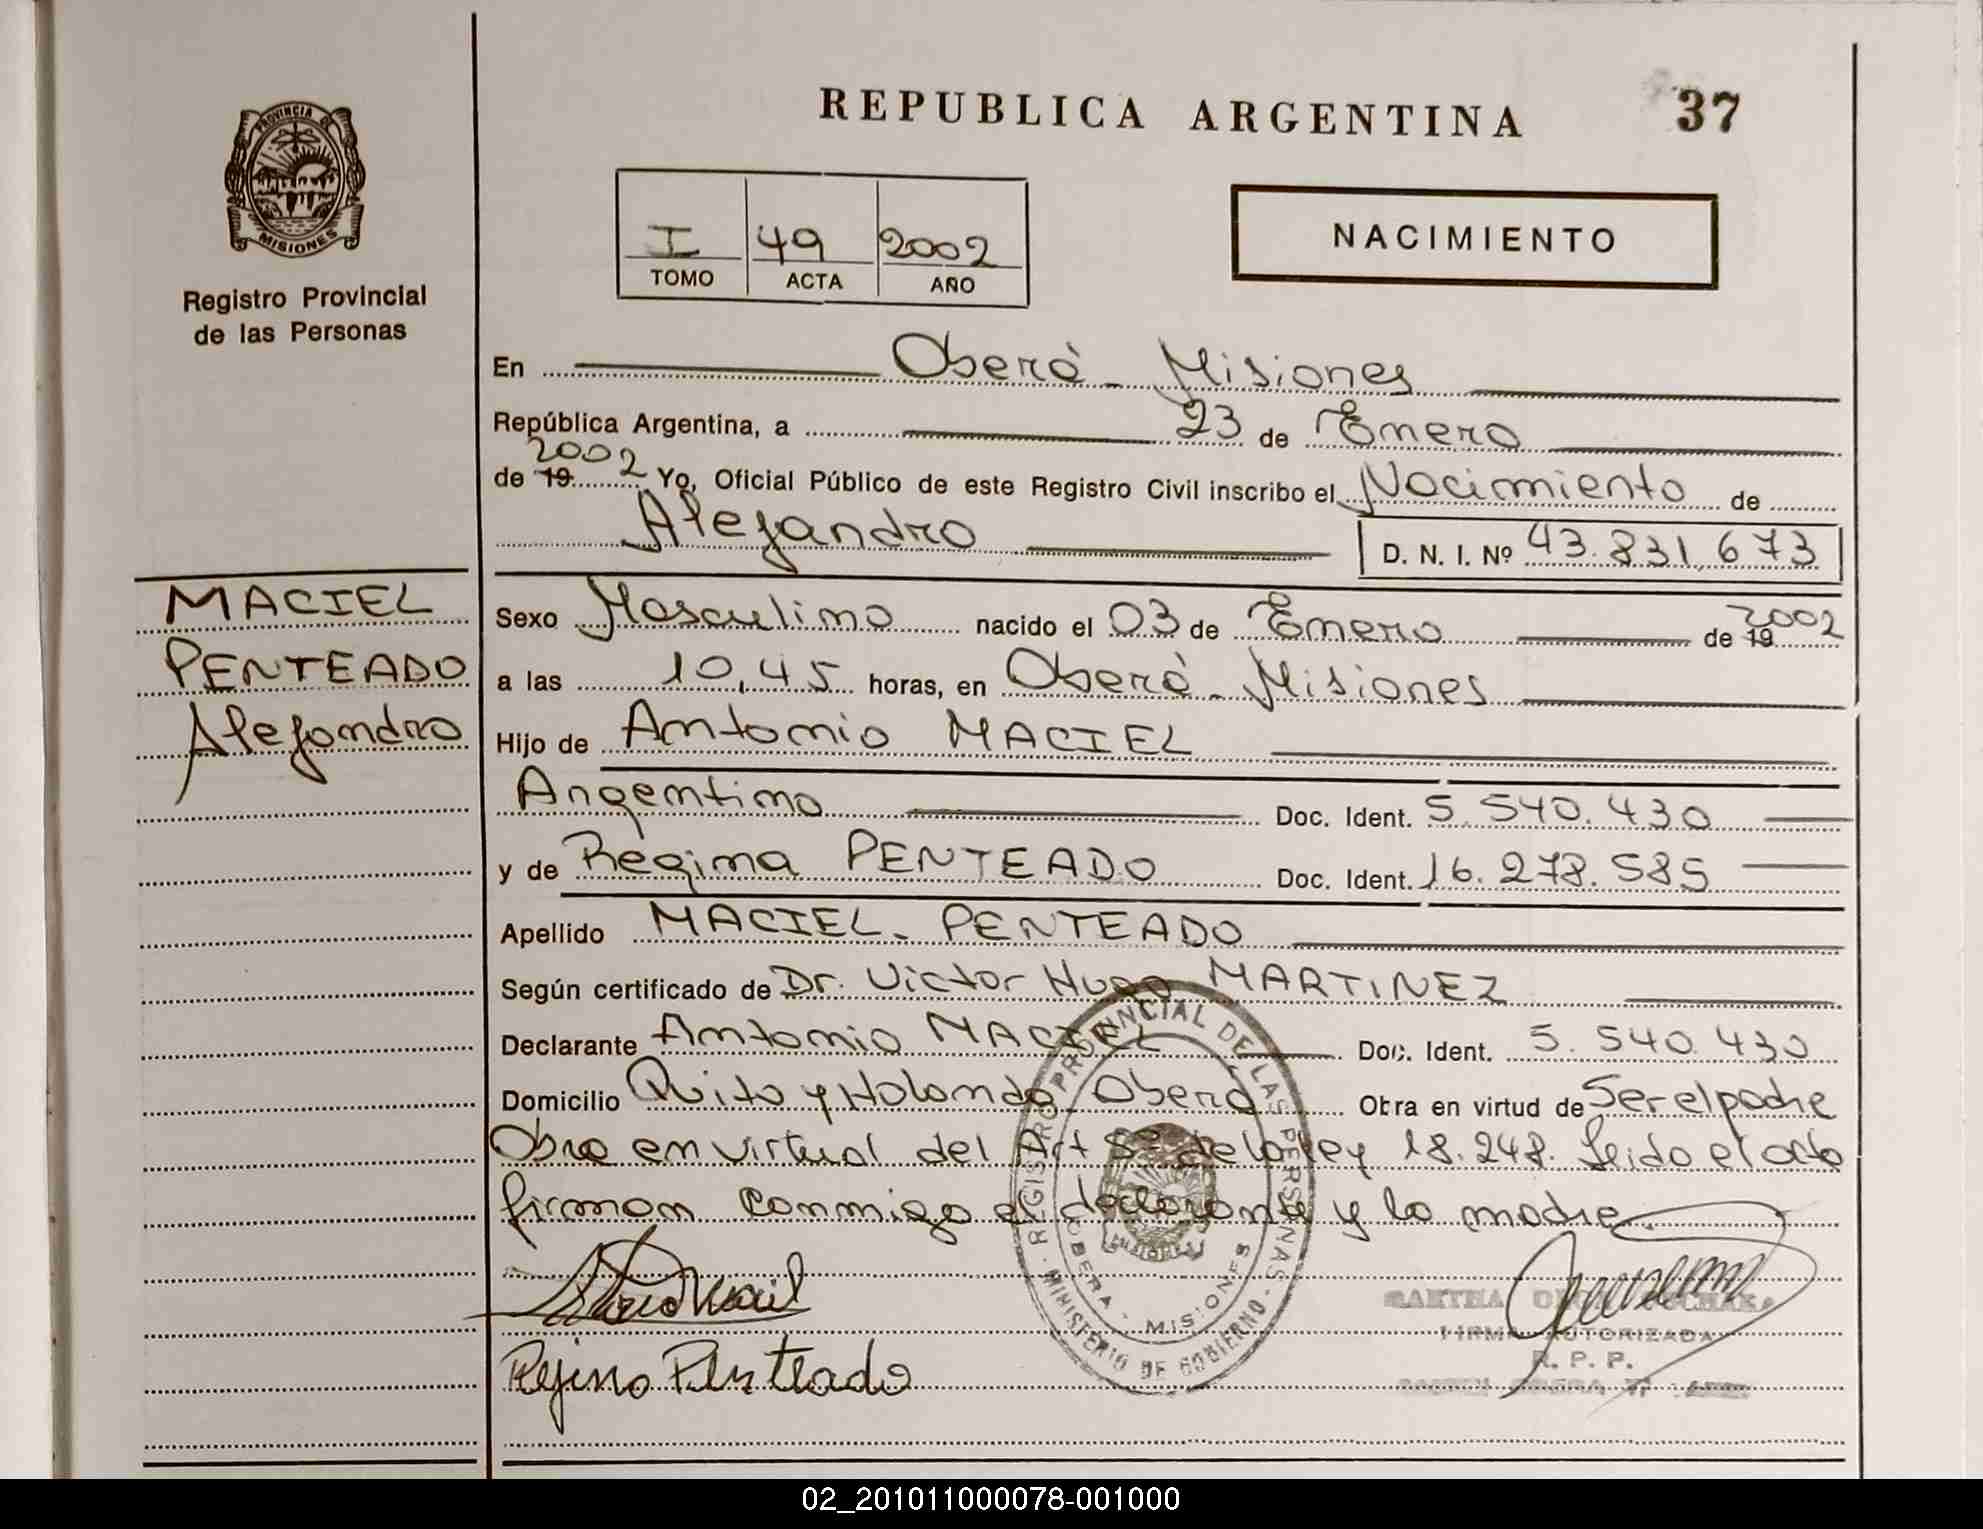 REPUBLICA ARGENTINA 37
PROVINCIA DE
MISIONES
Registro Provincial
de las Personas
I 49 2002
TOMO ACTA AÑO
NACIMIENTO
En Oberá - Misiones
República Argentina, a 23 de Enero
de 19 2002 Yo, Oficial Público de este Registro Civil inscribo el Nacimiento de
Alejandro D. N. I. Nº 43.831.673
MACIEL
PENTEADO
Alejandro
Sexo Masculino nacido el 03 de Enero de 19 2002
a las 10,45 horas, en Oberá - Misiones
Hijo de Antonio MACIEL
Argentino Doc. Ident. 5.540.430
y de Regina PENTEADO Doc. Ident. 16.278.585
Apellido MACIEL - PENTEADO
Según certificado de Dr. Victor Hugo MARTINEZ
Declarante Antonio MACIEL Doc. Ident. 5.540.430
Domicilio Quito y Holanda - Oberá Obra en virtud de Ser el padre
Obra en virtud del Art 5º de la ley 18.248. Leido el acta
firman conmigo el declarante y la madre.
REGISTRO PROVINCIAL DE LAS PERSONAS
MINISTERIO DE GOBIERNO
OBERA - MISIONES
FIRMA AUTORIZADA
R. P. P.
Regina Penteado
02_201011000078-001000